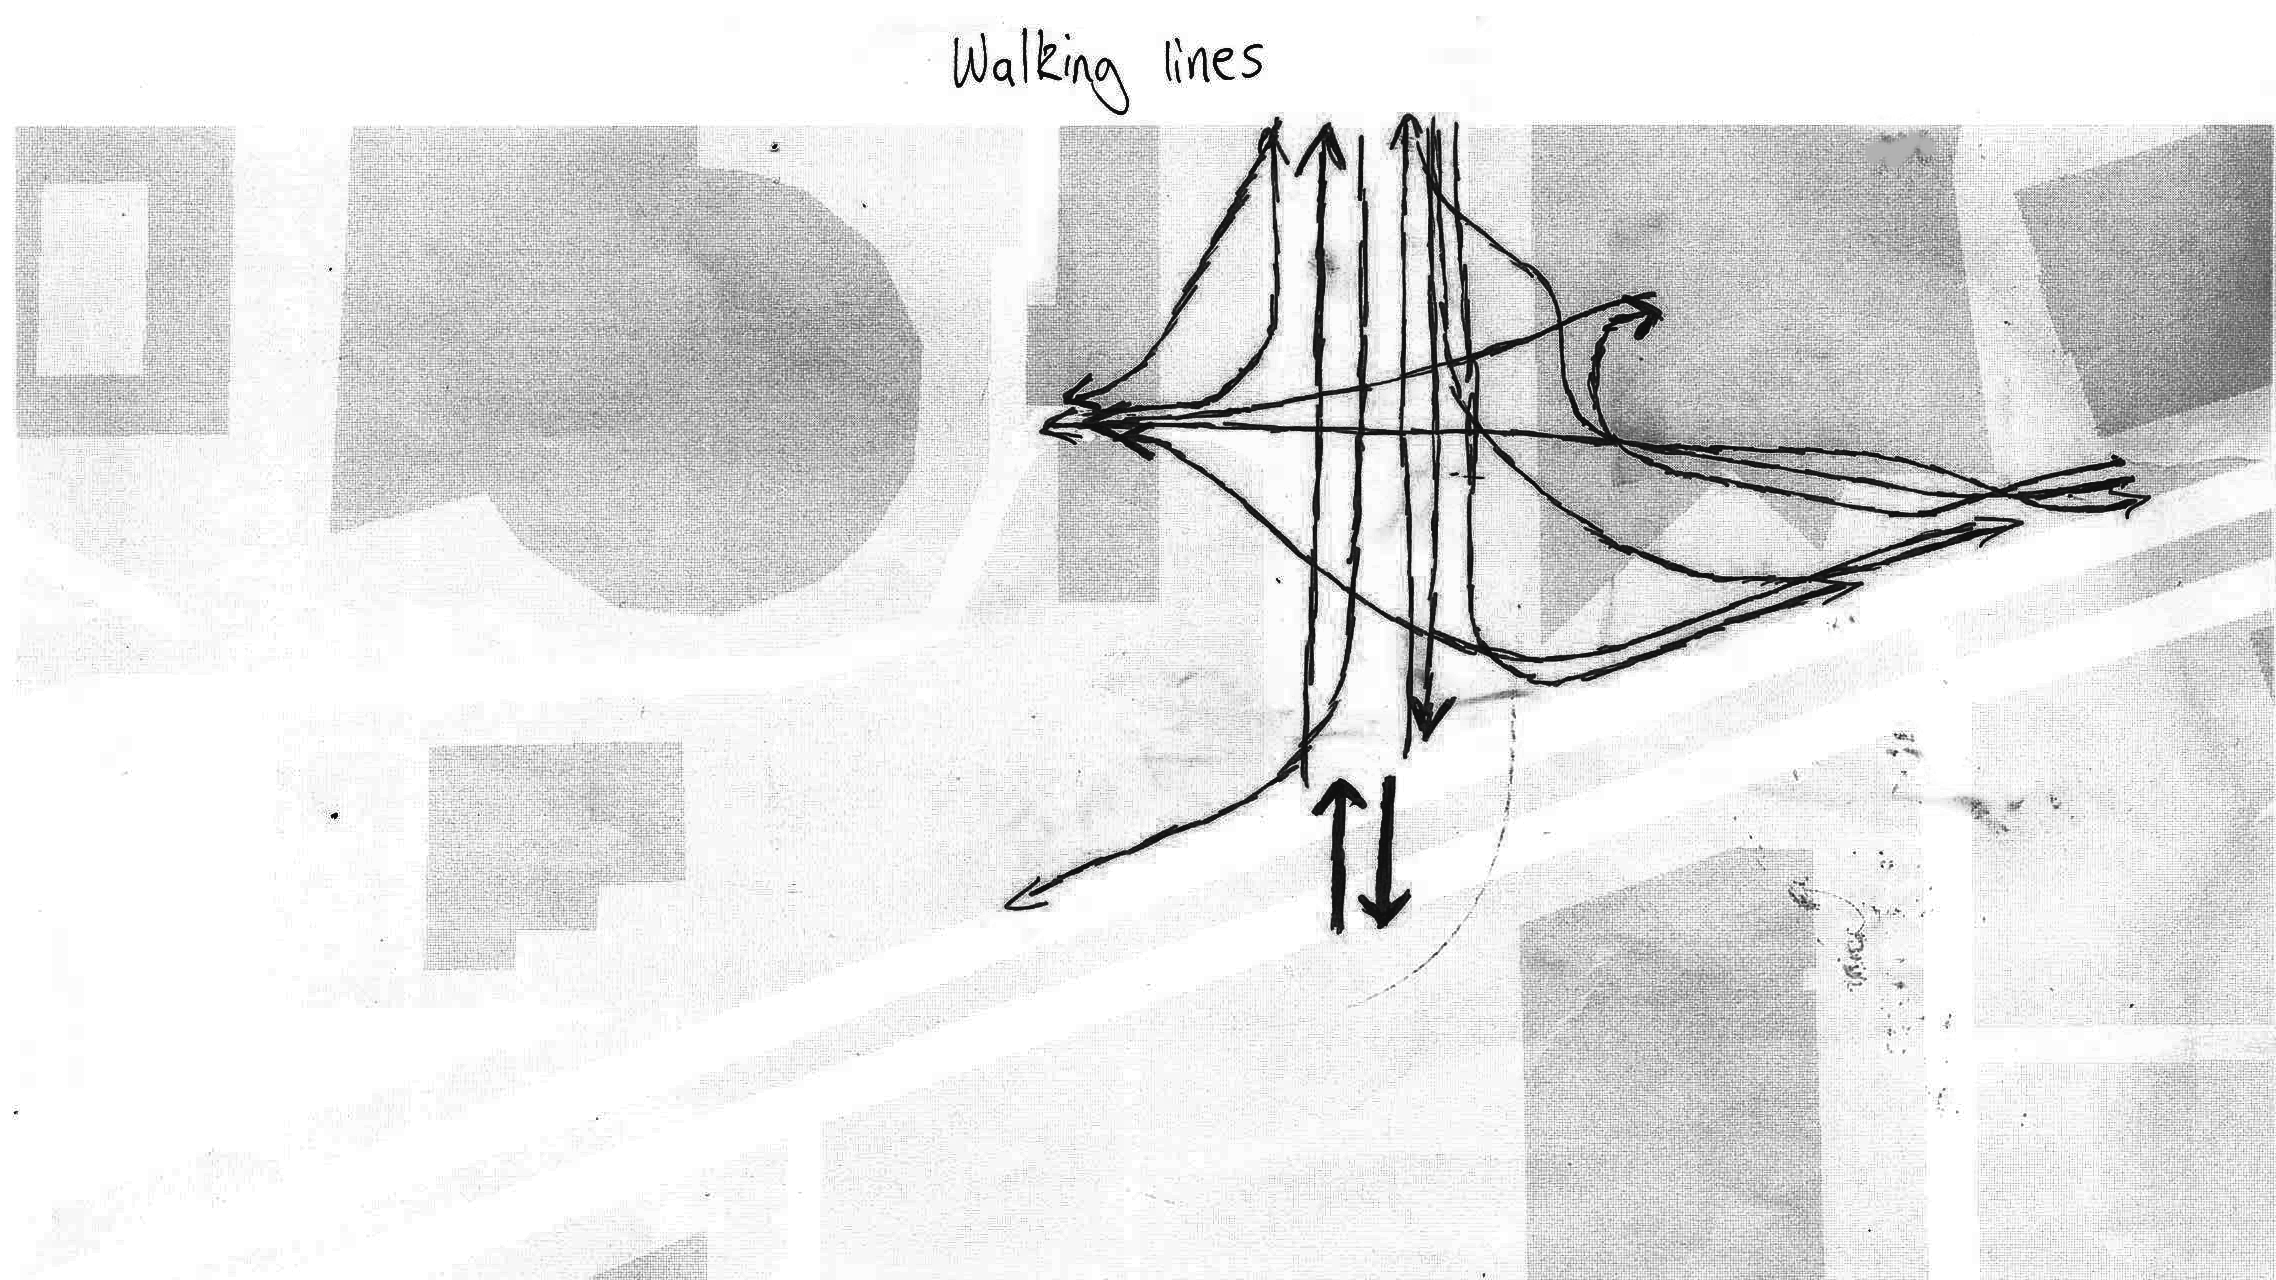 Walking lines